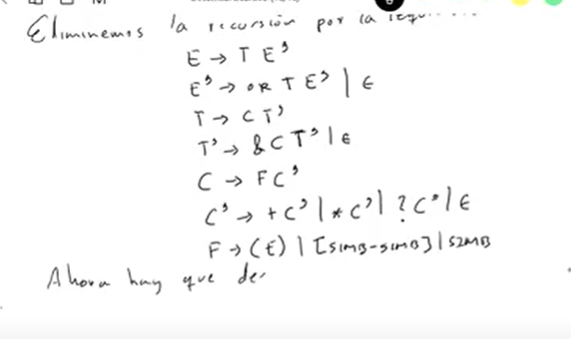 Eliminemos la recursión por la
E → T E'
E' → OR T E' | ϵ
T → C T'
T' → & C T' | ϵ
C → F C'
C' → + C' | * C' | ? C' | ϵ
F → (E) | [SIMB-SIMB] | SIMB
Ahora hay que